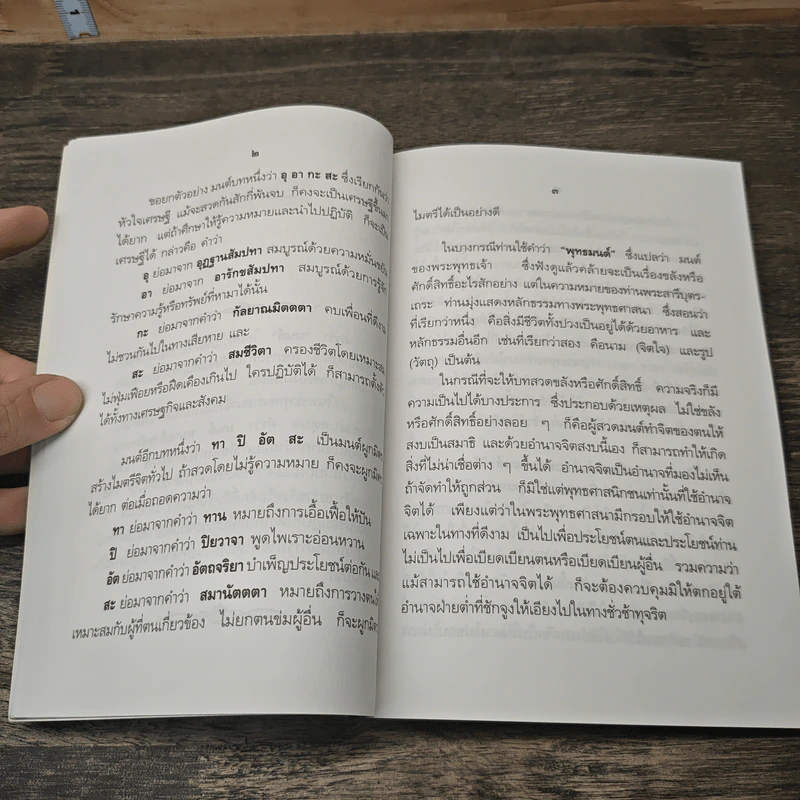 ๒
ขอยกตัวอย่าง มนต์บทหนึ่งว่า อุ อา กะ สะ ซึ่งเรียกกันว่า
หัวใจเศรษฐี แม้จะสวดกันสักกี่พันจบ ก็คงจะเป็นเศรษฐีขึ้นมา
ได้ยาก แต่ถ้าศึกษาให้รู้ความหมายและนำไปปฏิบัติ ก็จะเป็น
เศรษฐีได้ กล่าวคือ คำว่า
อุ ย่อมาจาก อุฏฐานสัมปทา สมบูรณ์ด้วยความหมั่นขยัน
อา ย่อมาจาก อารักขสัมปทา สมบูรณ์ด้วยการรู้จัก
รักษาความรู้หรือทรัพย์ที่หามาได้นั้น
กะ ย่อมาจากคำว่า กัลยาณมิตตตา คบเพื่อนที่ดีงาม
ไม่ชวนกันไปในทางเสียหาย และ
สะ ย่อมาจากคำว่า สมชีวิตา ครองชีวิตโดยเหมาะสม
ไม่ฟุ่มเฟือยหรือฝืดเคืองเกินไป ใครปฏิบัติได้ ก็สามารถตั้งตัว
ได้ทั้งทางเศรษฐกิจและสังคม
มนต์อีกบทหนึ่งว่า ทา ปิ อัต สะ เป็นมนต์ผูกมิตร
สร้างไมตรีจิตทั่วไป ถ้าสวดโดยไม่รู้ความหมาย ก็คงจะผูกมิตร
ได้ยาก ต่อเมื่อถอดความว่า
ทา ย่อมาจากคำว่า ทาน หมายถึงการเอื้อเฟื้อให้ปัน
ปิ ย่อมาจากคำว่า ปิยวาจา พูดไพเราะอ่อนหวาน
อัต ย่อมาจากคำว่า อัตถจริยา บำเพ็ญประโยชน์ต่อกัน และ
สะ ย่อมาจากคำว่า สมานัตตตา หมายถึงการวางตน
เหมาะสมกับผู้ที่ตนเกี่ยวข้อง ไม่ยกตนข่มผู้อื่น ก็จะผูกมิตร
๓
ไมตรีได้เป็นอย่างดี
ในบางกรณีท่านใช้คำว่า "พุทธมนต์" ซึ่งแปลว่า มนต์
ของพระพุทธเจ้า ซึ่งฟังดูแล้วคล้ายจะเป็นเรื่องขลังหรือ
ศักดิ์สิทธิ์อะไรสักอย่าง แต่ในความหมายของท่านพระสารีบุตร-
เถระ ท่านมุ่งแสดงหลักธรรมทางพระพุทธศาสนา ซึ่งสอนว่า
ที่เรียกว่าหนึ่ง คือสิ่งมีชีวิตทั้งปวงเป็นอยู่ได้ด้วยอาหาร และ
หลักธรรมอื่นอีก เช่นที่เรียกว่าสอง คือนาม (จิตใจ) และรูป
(วัตถุ) เป็นต้น
ในกรณีที่จะให้บทสวดขลังหรือศักดิ์สิทธิ์ ความจริงก็มี
ความเป็นไปได้บางประการ ซึ่งประกอบด้วยเหตุผล ไม่ใช่ขลัง
หรือศักดิ์สิทธิ์อย่างลอย ๆ ก็คือผู้สวดมนต์ทำจิตของตนให้
สงบเป็นสมาธิ และด้วยอำนาจจิตสงบนี้เอง ก็สามารถทำให้เกิด
สิ่งที่ไม่น่าเชื่อต่าง ๆ ขึ้นได้ อำนาจจิตเป็นอำนาจที่มองไม่เห็น
ถ้าจัดทำให้ถูกส่วน ก็มิใช่แต่พุทธศาสนิกชนเท่านั้นที่ใช้อำนาจ
จิตได้ เพียงแต่ว่าในพระพุทธศาสนามีกรอบให้ใช้อำนาจจิต
เฉพาะในทางที่ดีงาม เป็นไปเพื่อประโยชน์ตนและประโยชน์ท่าน
ไม่เป็นไปเพื่อเบียดเบียนตนหรือเบียดเบียนผู้อื่น รวมความว่า
แม้สามารถใช้อำนาจจิตได้ ก็จะต้องควบคุมมิให้ตกอยู่ใต้
อำนาจฝ่ายต่ำที่ชักจูงให้เอียงไปในทางชั่วช้าทุจริต